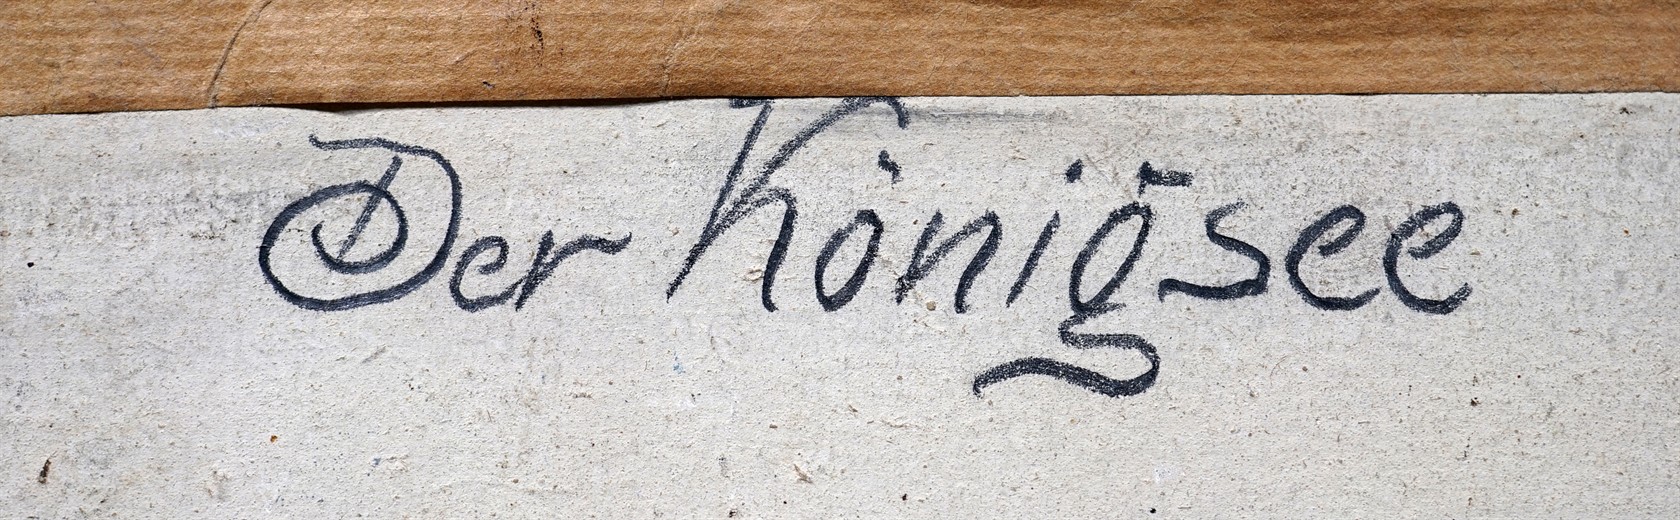 Der Königsee